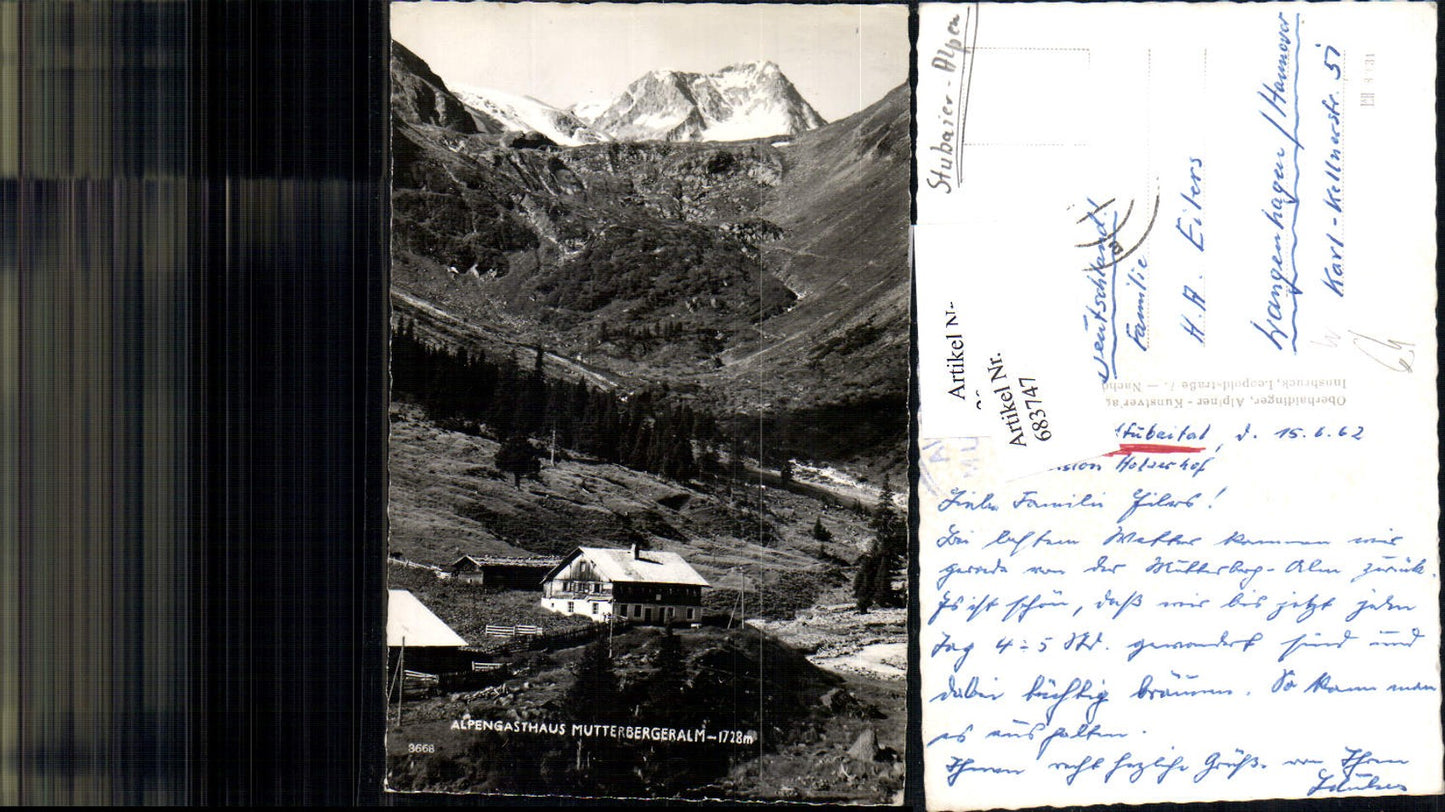 ALPENGASTHAUS MUTTERBERGERALM – 1728m
3668
Stubaier-Alpen
Deutschland!
Familie
H. A. Eilers
Langenhagen/Hannover
Karl-Kellnerstr. 51
64
Artikel Nr.
Artikel Nr.
683747
Oberhaidinger, Alpiner-Kunstverlag
Innsbruck, Leopoldstraße 7. — Nachd
Stubaital, d. 15.6.62
Holzerhof
Liebe Familie Eilers!
Bei bestem Wetter kommen wir
gerade von der Mutterberg-Alm zurück.
Es ist schön, daß wir bis jetzt jeden
Tag 4–5 Std. gewandert sind und
dabei tüchtig bräunen. So kann man
es aushalten.
Ihnen recht herzliche Grüße von Ihren